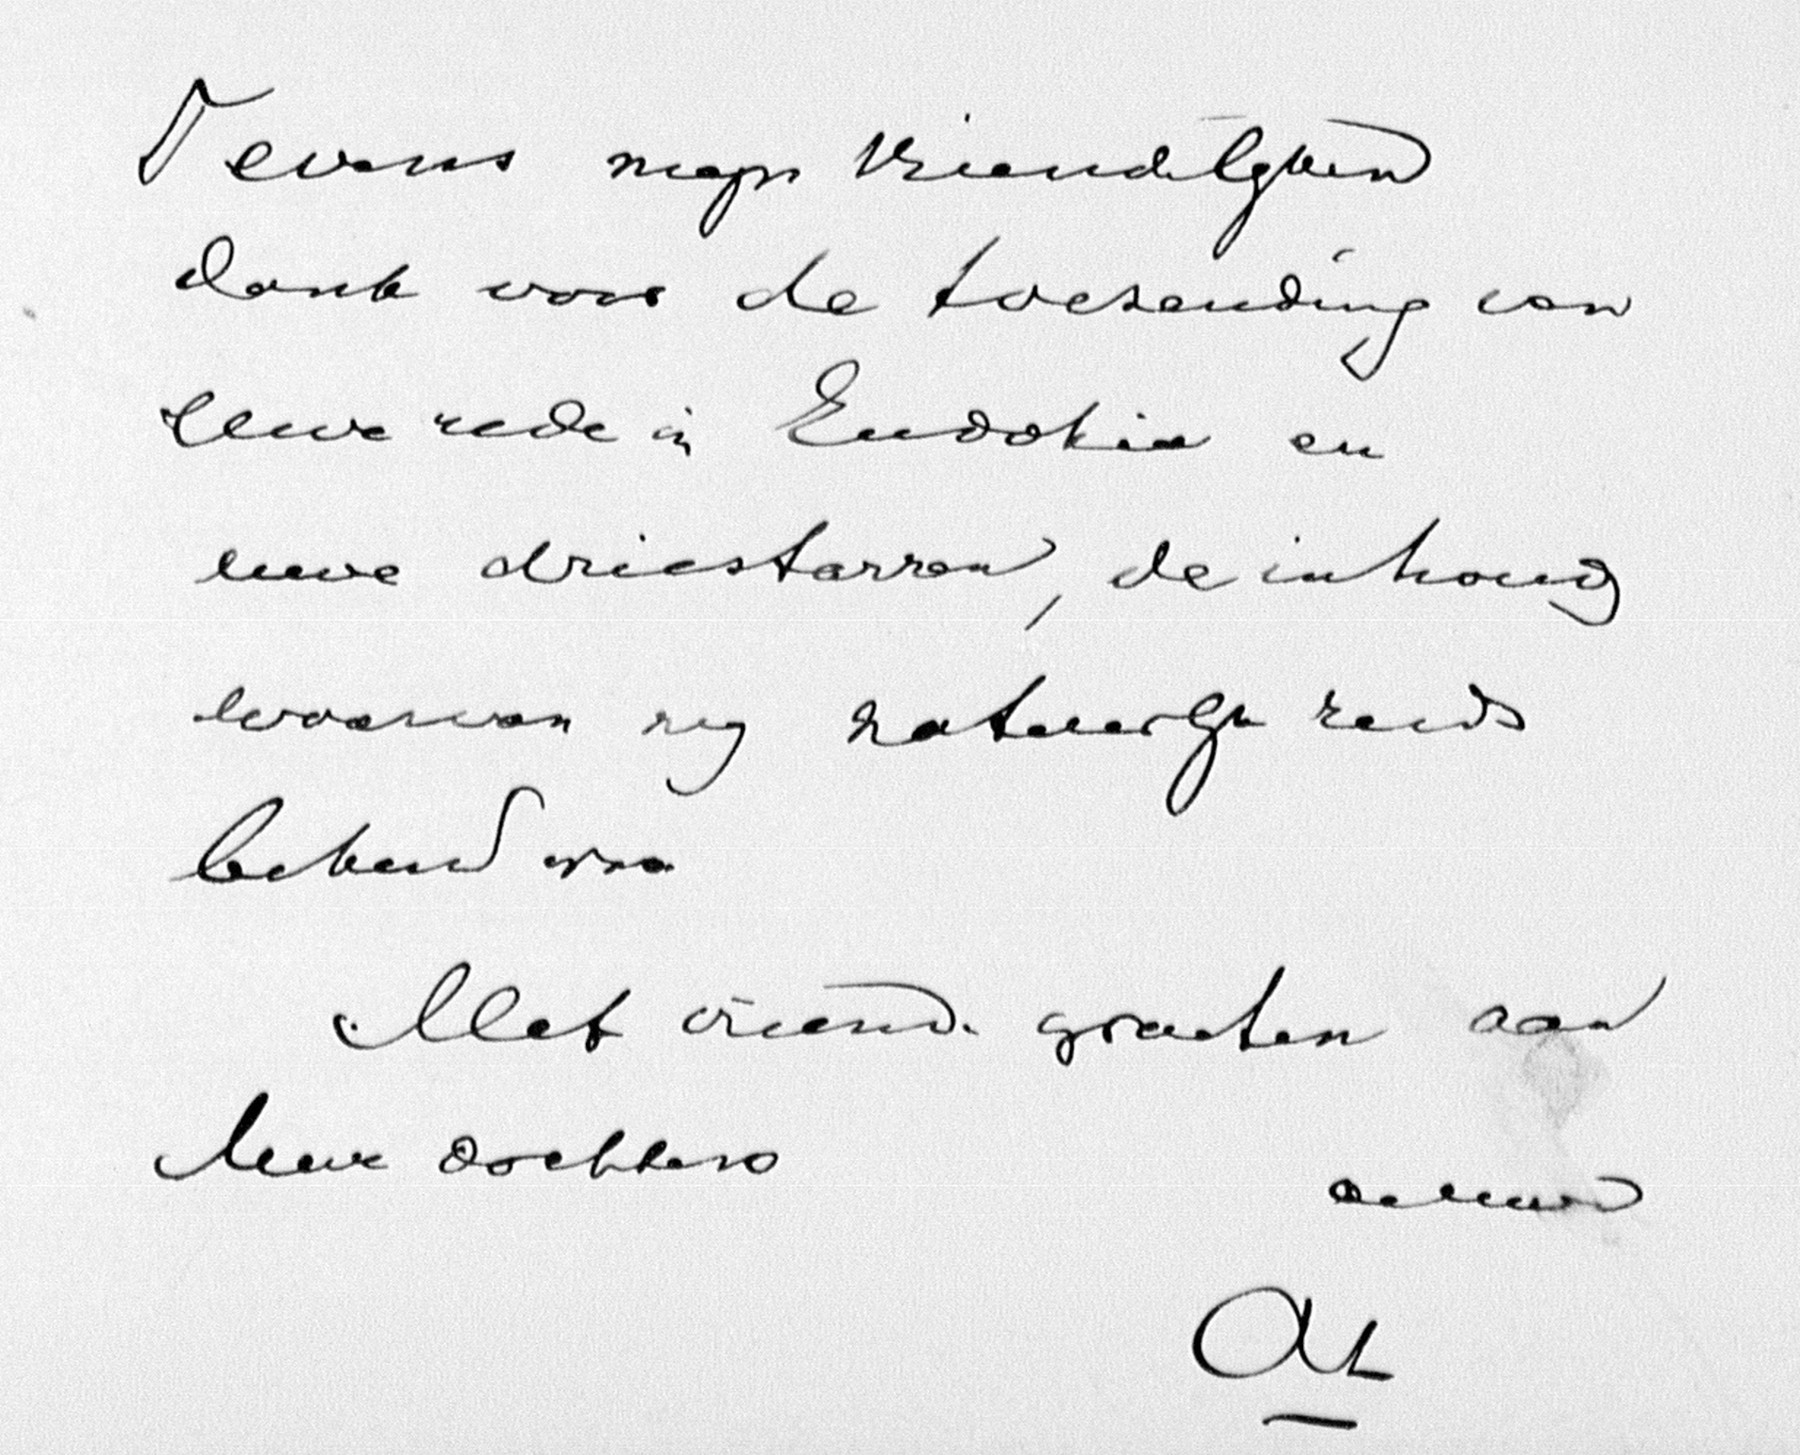 Tevens mijn vriendelijken
dank voor de toezending van
Uwe rede in Eudokia en
uwe driestarren, de inhoud
waarvan mij natuurlijk reeds
bekend was
Met vriend. groeten aan
Uwe dochters